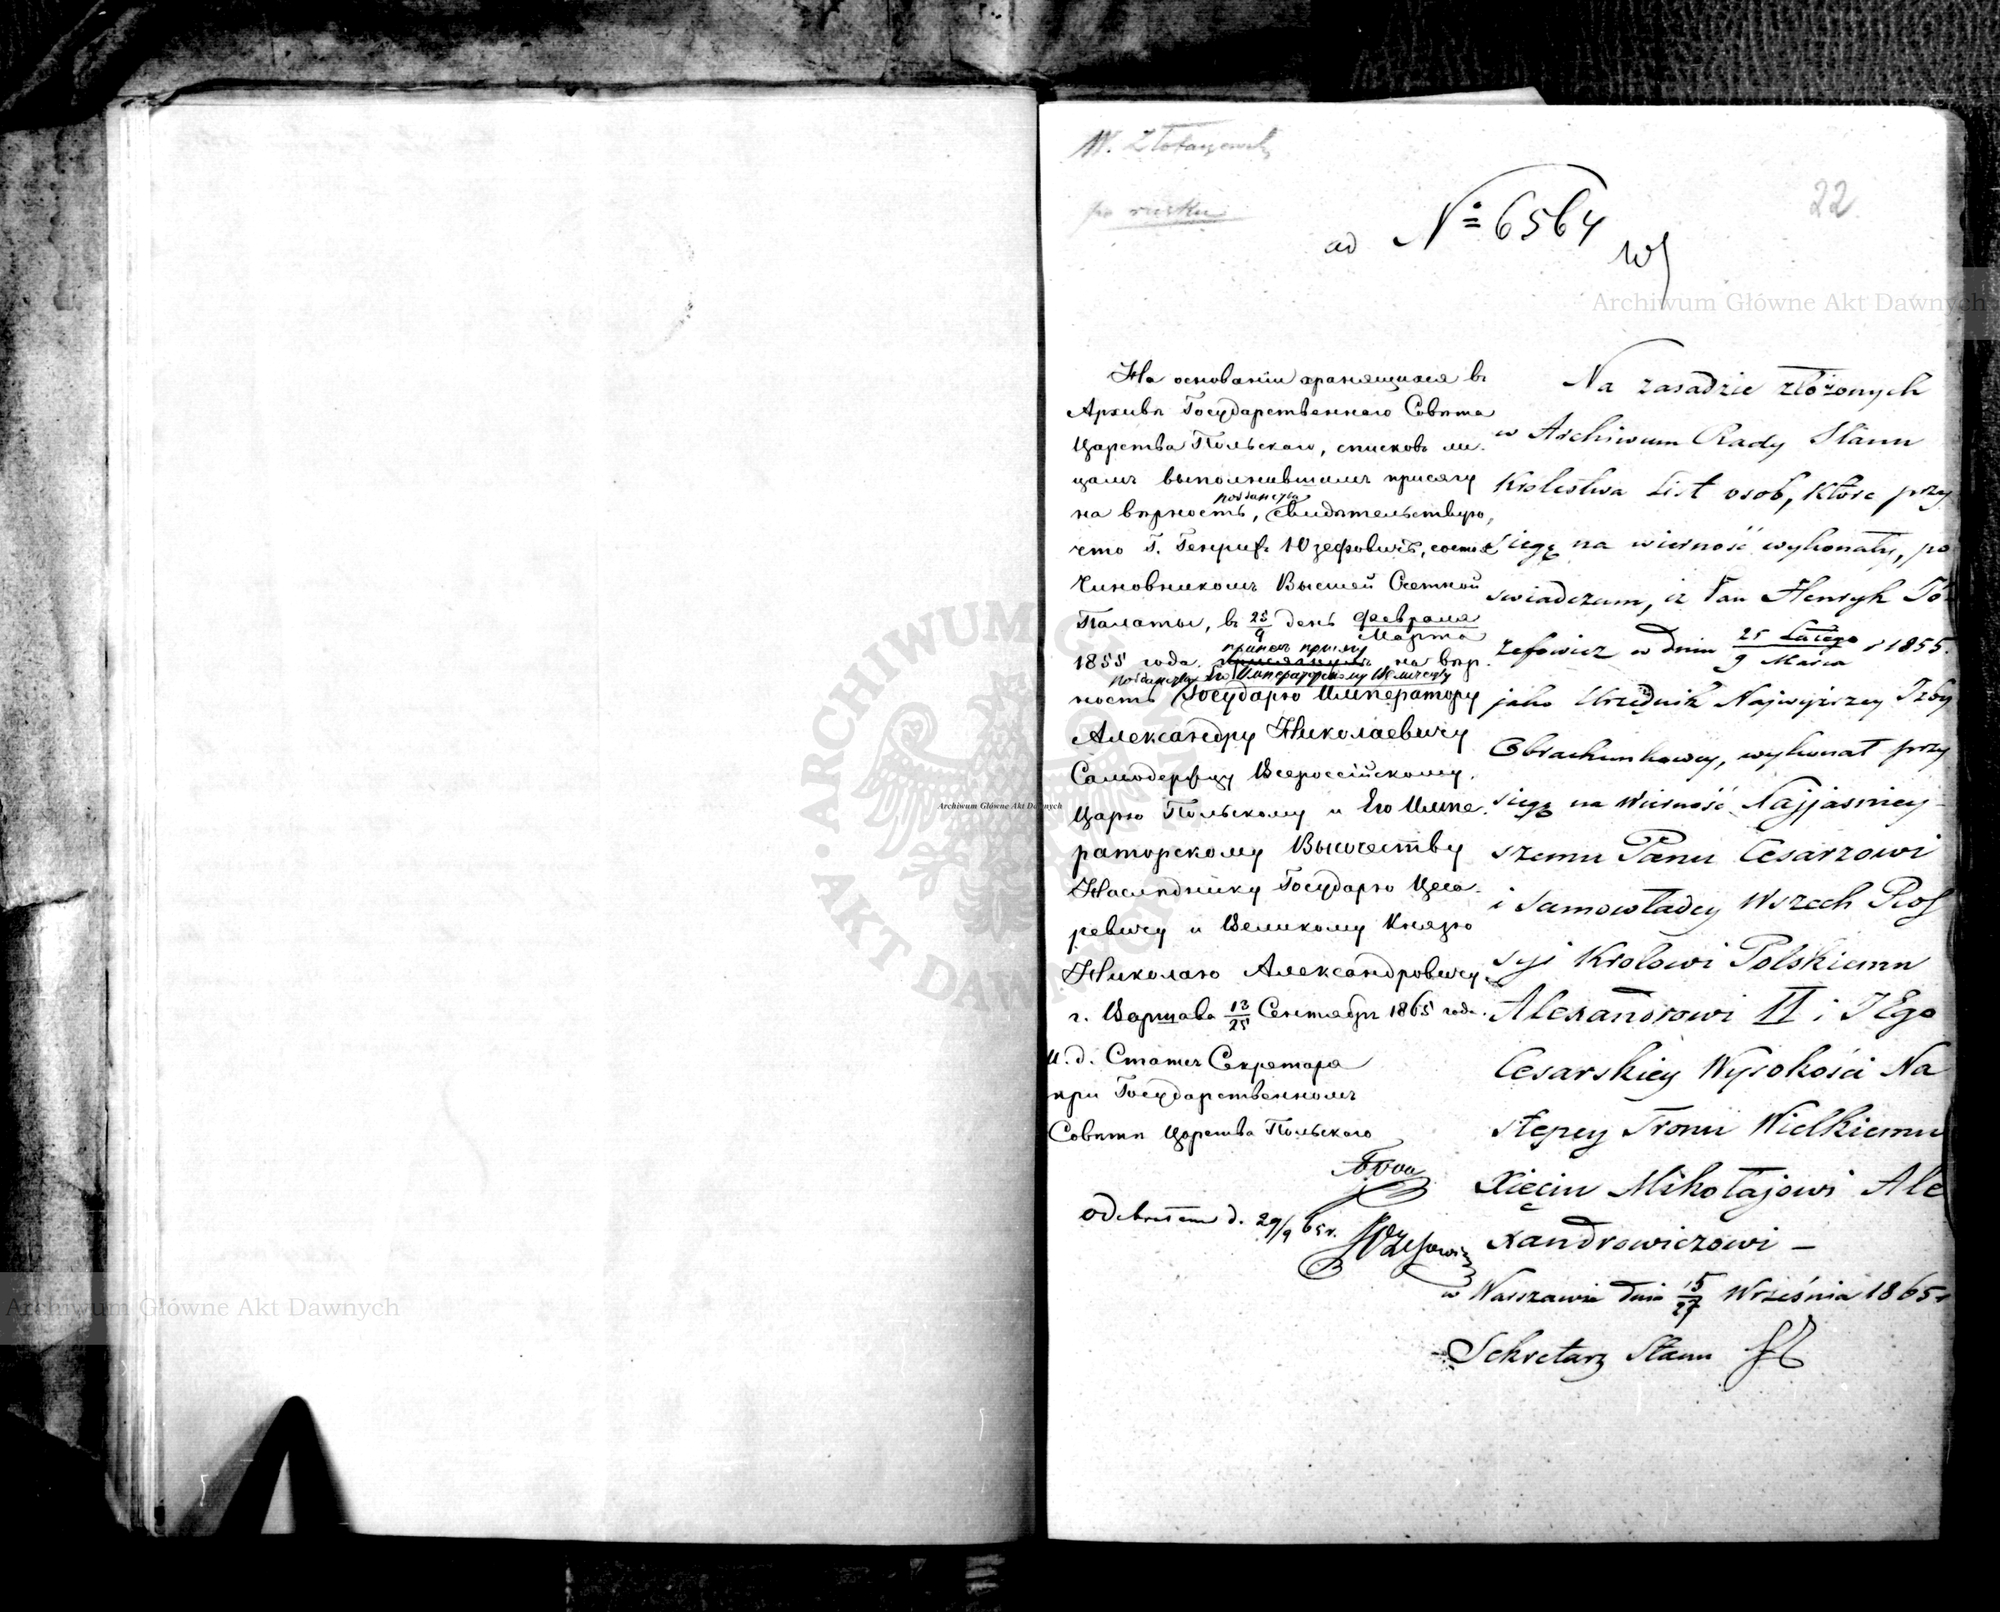 W. Złotaszewski
po rusku
22
ad № 6564
Archiwum Główne Akt Dawnych
На основаніи хранящихся въ
Архивѣ Государственнаго Совѣта
Царства Польскаго, списковъ ли-
цамъ выполнившимъ присягу
подданства
на вѣрность, свидѣтельствую,
что Г. Генрихъ Юзефовичъ, состоя
Чиновникомъ Высшей Счетной
Палаты, въ 25/9 день Февраля/Марта
принесъ присягу
1855 года на вѣр-
подданства Его Императорскому Величеству
ность Государю Императору
Александру Николаевичу
Самодержцу Всероссійскому,
Царю Польскому и Его Импе-
раторскому Высочеству
Наслѣднику Государю Цеса-
ревичу и Великому Князю
Николаю Александровичу
г. Варшава 13/25 Сентября 1865 года.
И. д. Статсъ Секретаря
при Государственномъ
Совѣтѣ Царства Польскаго
odebrałem d. 29/9 65 r.
HJózefowicz
Na zasadzie złożonych
w Archiwum Rady Stanu
Królestwa List osób, które przy
sięgę na wierność wykonały, po
swiadczam, iż Pan Henryk Jó-
zefowicz w dniu 25 Lutego/9 Marca r 1855.
jako Urzędnik Najwyższey Izby
Obrachunkowey, wykonał przy
sięgę na Wierność Najjasniey-
szemu Panu Cesarzowi
i Samowładcy Wszech Ros
syi Królowi Polskiemu
Alexandrowi II i JEgo
Cesarskiey Wysokości Na
stępcy Tronu Wielkiemu
Xięciu Mikołajowi Ale
xandrowiczowi —
w Warszawie dnia 15/27 Września 1865 r
Sekretarz Stanu
ARCHIWUM GŁÓWNE AKT DAWNYCH
Archiwum Główne Akt Dawnych
Archiwum Główne Akt Dawnych